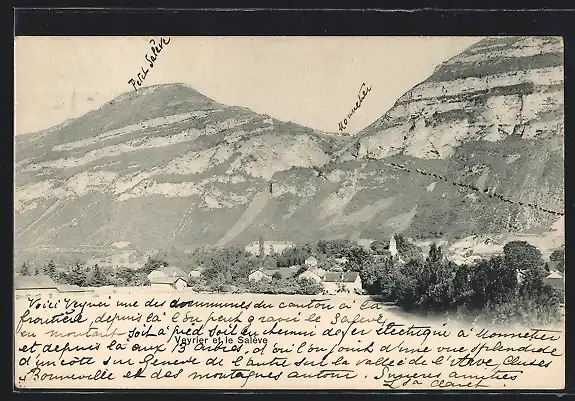 Petit Salève
Monnetier
Voici Veyrier une des communes du canton à la
frontière depuis là l'on peut gravir le Salève
en montant soit à pied soit en chemin de fer électrique à Monnetier
Veyrier et le Salève
et depuis là aux 13 Arbres, d'où l'on jouit d'une vue splendide
d'un côté sur Genève de l'autre sur la vallée de l'Arve Cluses
Bonneville et des montagnes autour.
amitiés